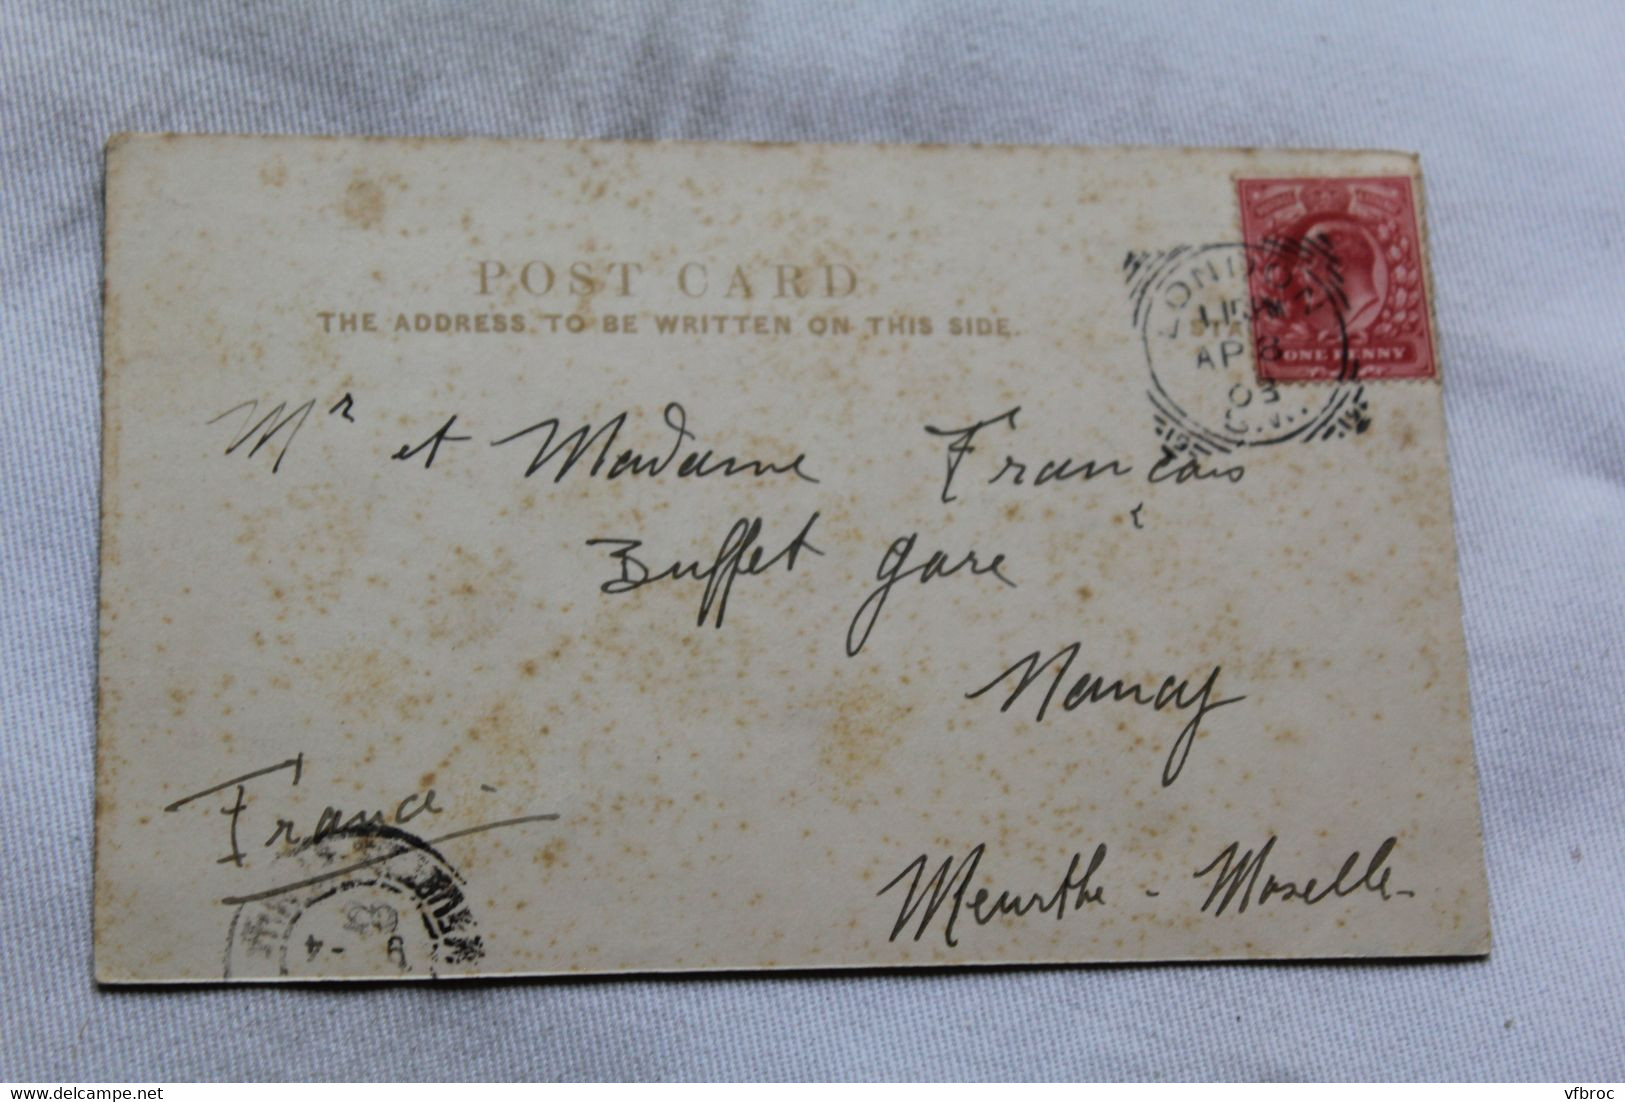 POST CARD
THE ADDRESS TO BE WRITTEN ON THIS SIDE.
STA
ONE PENNY
LONDON
AP 8
03
Mr et Madame François
Buffet gare
Nancy
France
Meurthe - Moselle
- 4
03
vfbroc